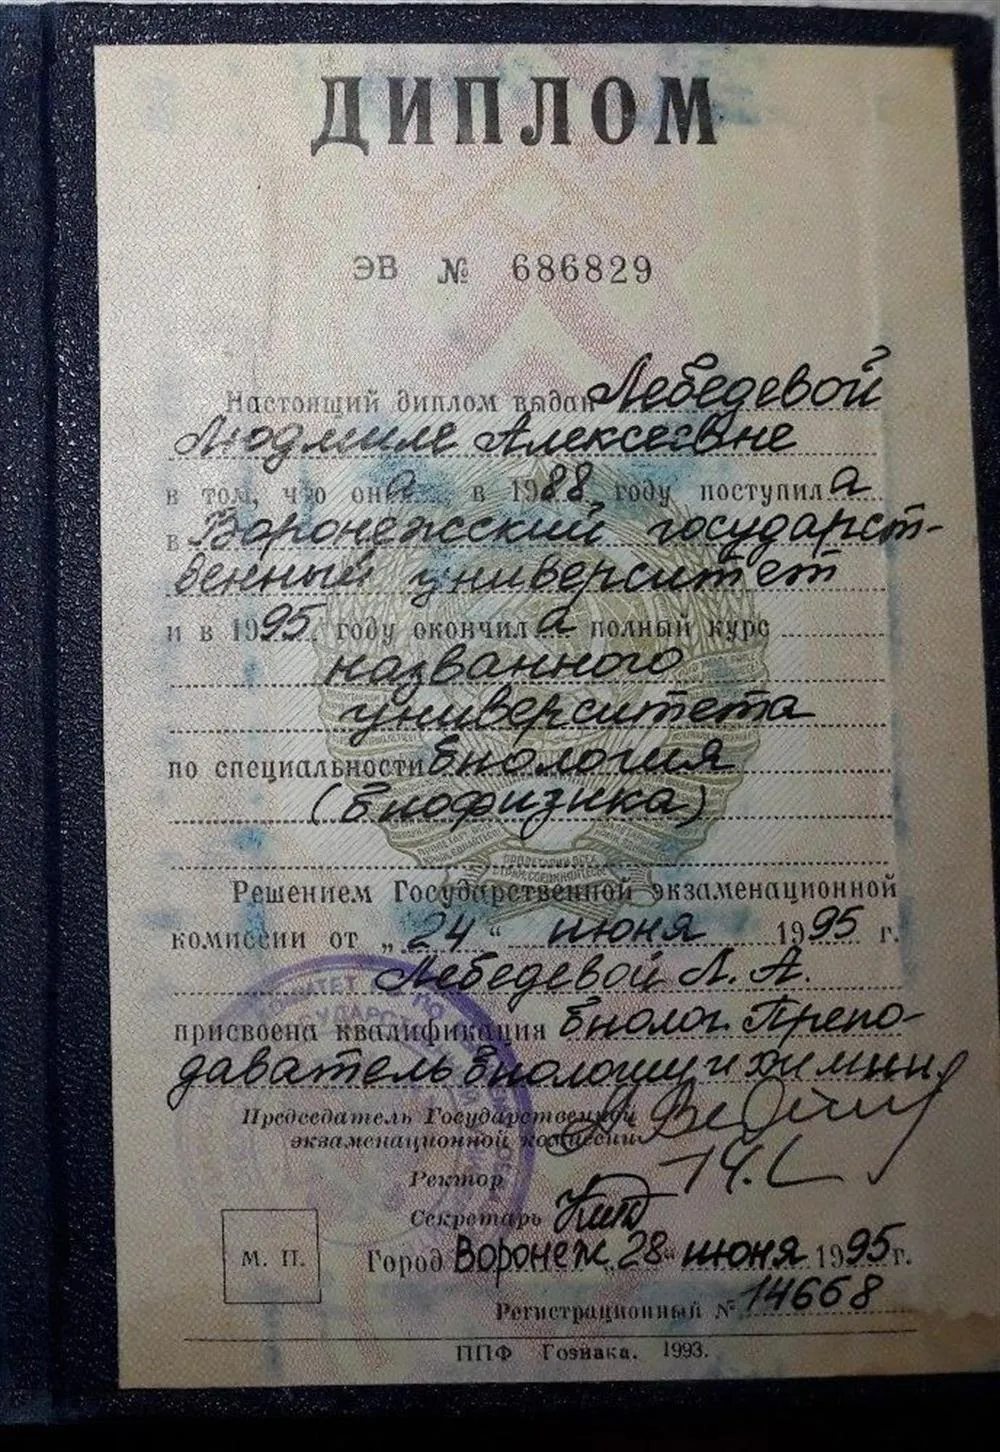 ДИПЛОМ
ЭВ № 686829
Настоящий диплом выдан Лебедевой
Людмиле Алексеевне
в том, что она в 1988 году поступила
в Воронежский государст-
венный университет
и в 1995 году окончила полный курс
названного
университета
по специальности биология
(биофизика)
Решением Государственной экзаменационной
комиссии от „24“ июня 1995 г.
Лебедевой Л. А.
присвоена квалификация Биолог. Препо-
даватель биологии и химии.
Председатель Государственной
экзаменационной комиссии
Ректор
Секретарь
М. П.
Город Воронеж „28“ июня 1995 г.
Регистрационный № 14668
ППФ Гознака. 1993.